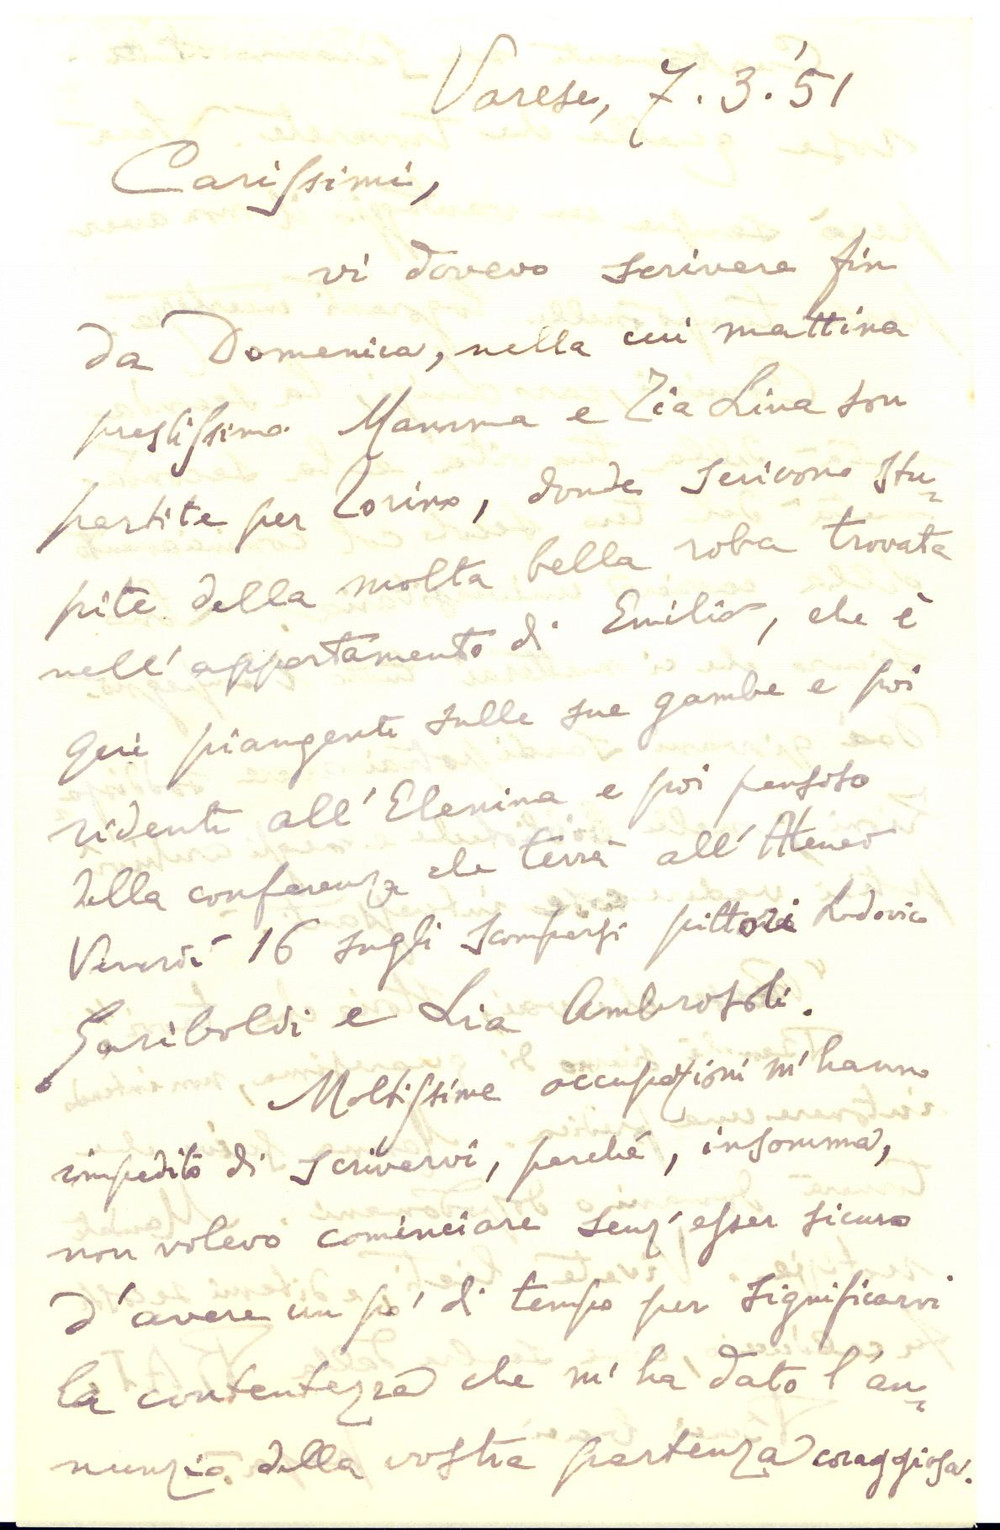 Varese, 7.3.'51
Carissimi,
vi dovevo scrivere fin
da Domenica, nella cui mattina
prestissimo Mamma e Zia Lina son
partite per Torino, donde scrivono stu-
pite della molta bella roba trovata
nell'appartamento di Emilio, che è
qui piangente sulle sue gambe e poi
ridente all'Elenina e poi pensoso
della conferenza che terrà all'Ateneo
Venerdì 16 sugli scomparsi pittori Lodovico
Gariboldi e Lia Ambrosoli.
Moltissime occupazioni m'hanno
impedito di scrivervi, perché, insomma,
non volevo cominciare senz'esser sicuro
d'avere un po' di tempo per significarvi
la contentezza che m'ha dato l'an-
nunzio della vostra partenza coraggiosa.